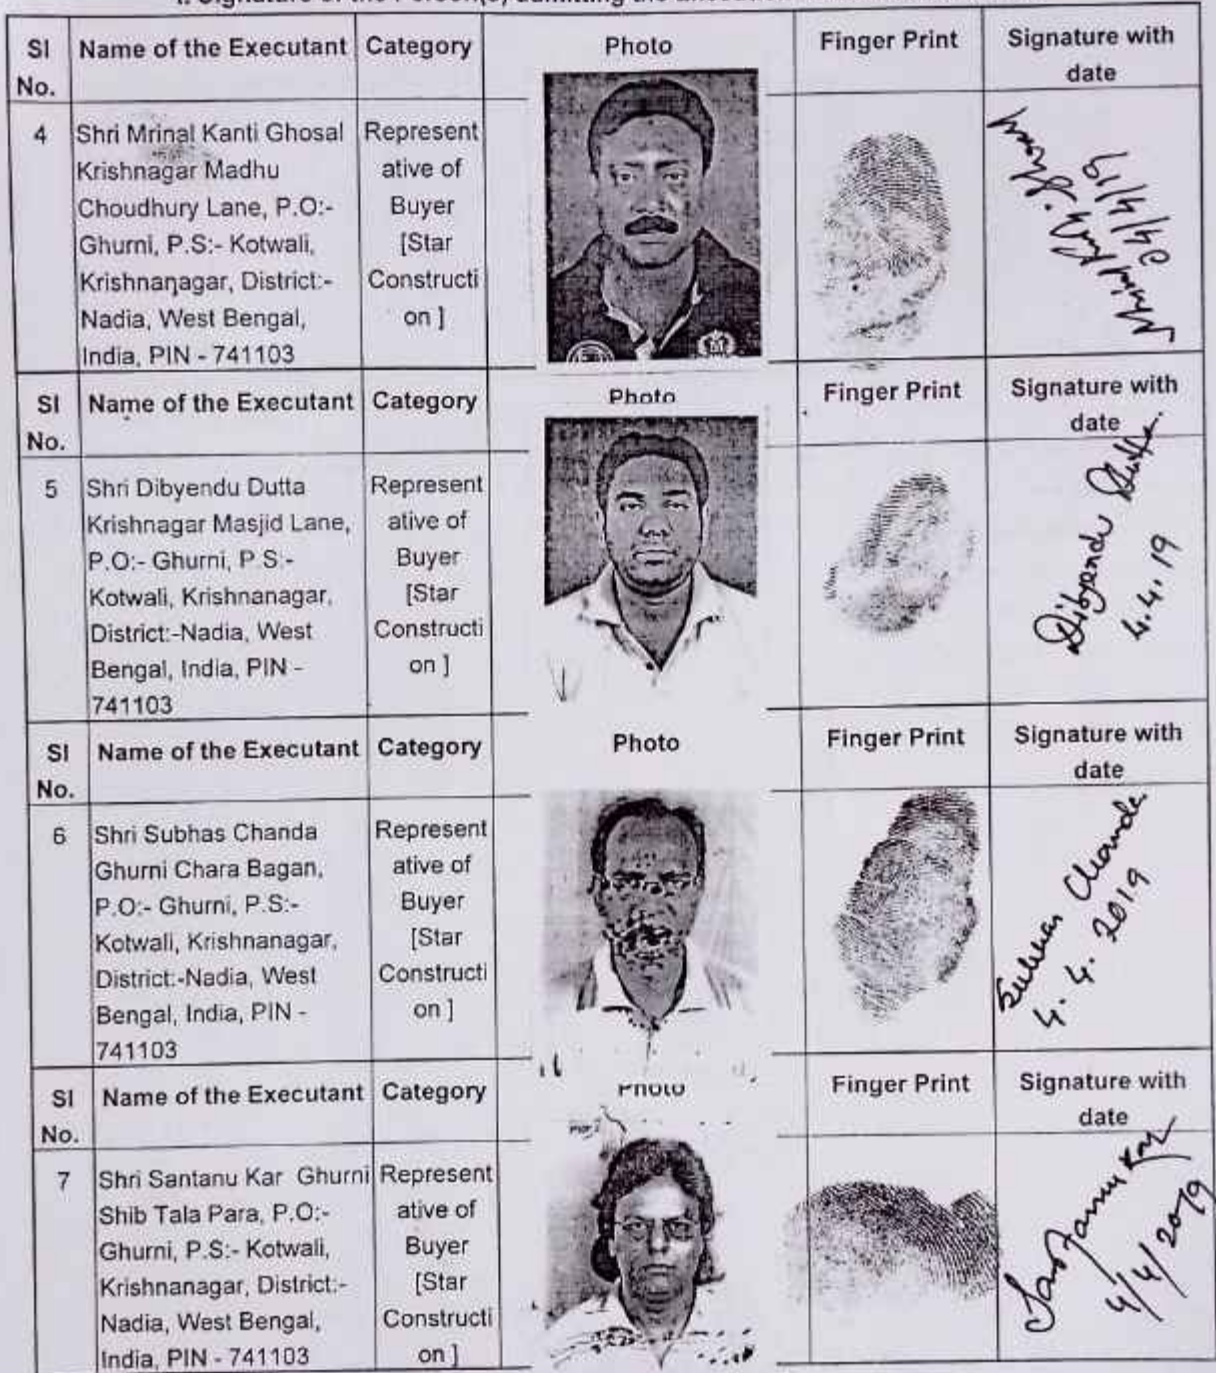 I. Signature of the Person(s) admitting the
Sl No. Name of the Executant Category Photo Finger Print Signature with date
4 Shri Mrinal Kanti Ghosal
Krishnagar Madhu
Choudhury Lane, P.O:-
Ghurni, P.S:- Kotwali,
Krishnanagar, District:-
Nadia, West Bengal,
India, PIN - 741103
Represent
ative of
Buyer
[Star
Constructi
on ]
Mrinal Kanti Ghosal
04/4/19
Sl No. Name of the Executant Category Photo Finger Print Signature with date
5 Shri Dibyendu Dutta
Krishnagar Masjid Lane,
P.O:- Ghurni, P.S:-
Kotwali, Krishnanagar,
District:-Nadia, West
Bengal, India, PIN -
741103
Represent
ative of
Buyer
[Star
Constructi
on ]
Dibyendu Dutta.
4.4.19
Sl No. Name of the Executant Category Photo Finger Print Signature with date
6 Shri Subhas Chanda
Ghurni Chara Bagan,
P.O:- Ghurni, P.S:-
Kotwali, Krishnanagar,
District:-Nadia, West
Bengal, India, PIN -
741103
Represent
ative of
Buyer
[Star
Constructi
on ]
Subhas Chanda
4.4.2019
Sl No. Name of the Executant Category Photo Finger Print Signature with date
7 Shri Santanu Kar Ghurni
Shib Tala Para, P.O:-
Ghurni, P.S:- Kotwali,
Krishnanagar, District:-
Nadia, West Bengal,
India, PIN - 741103
Represent
ative of
Buyer
[Star
Constructi
on ]
Santanu Kar
4/4/2019